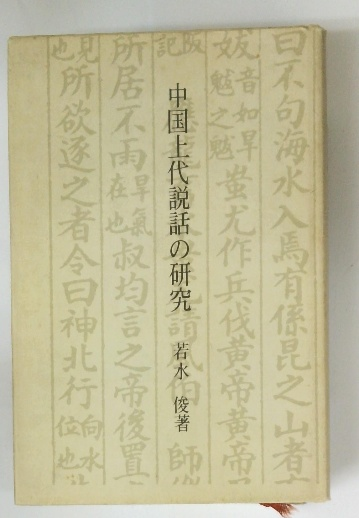 中国上代説話の研究
若水 俊著
曰不句海水入焉有係昆之山者
妭音如旱魃之魃蚩尤作兵伐黄帝黄帝
所居不雨旱氣在也叔均言之帝後置
見也所欲逐之者令曰神北行向水位也